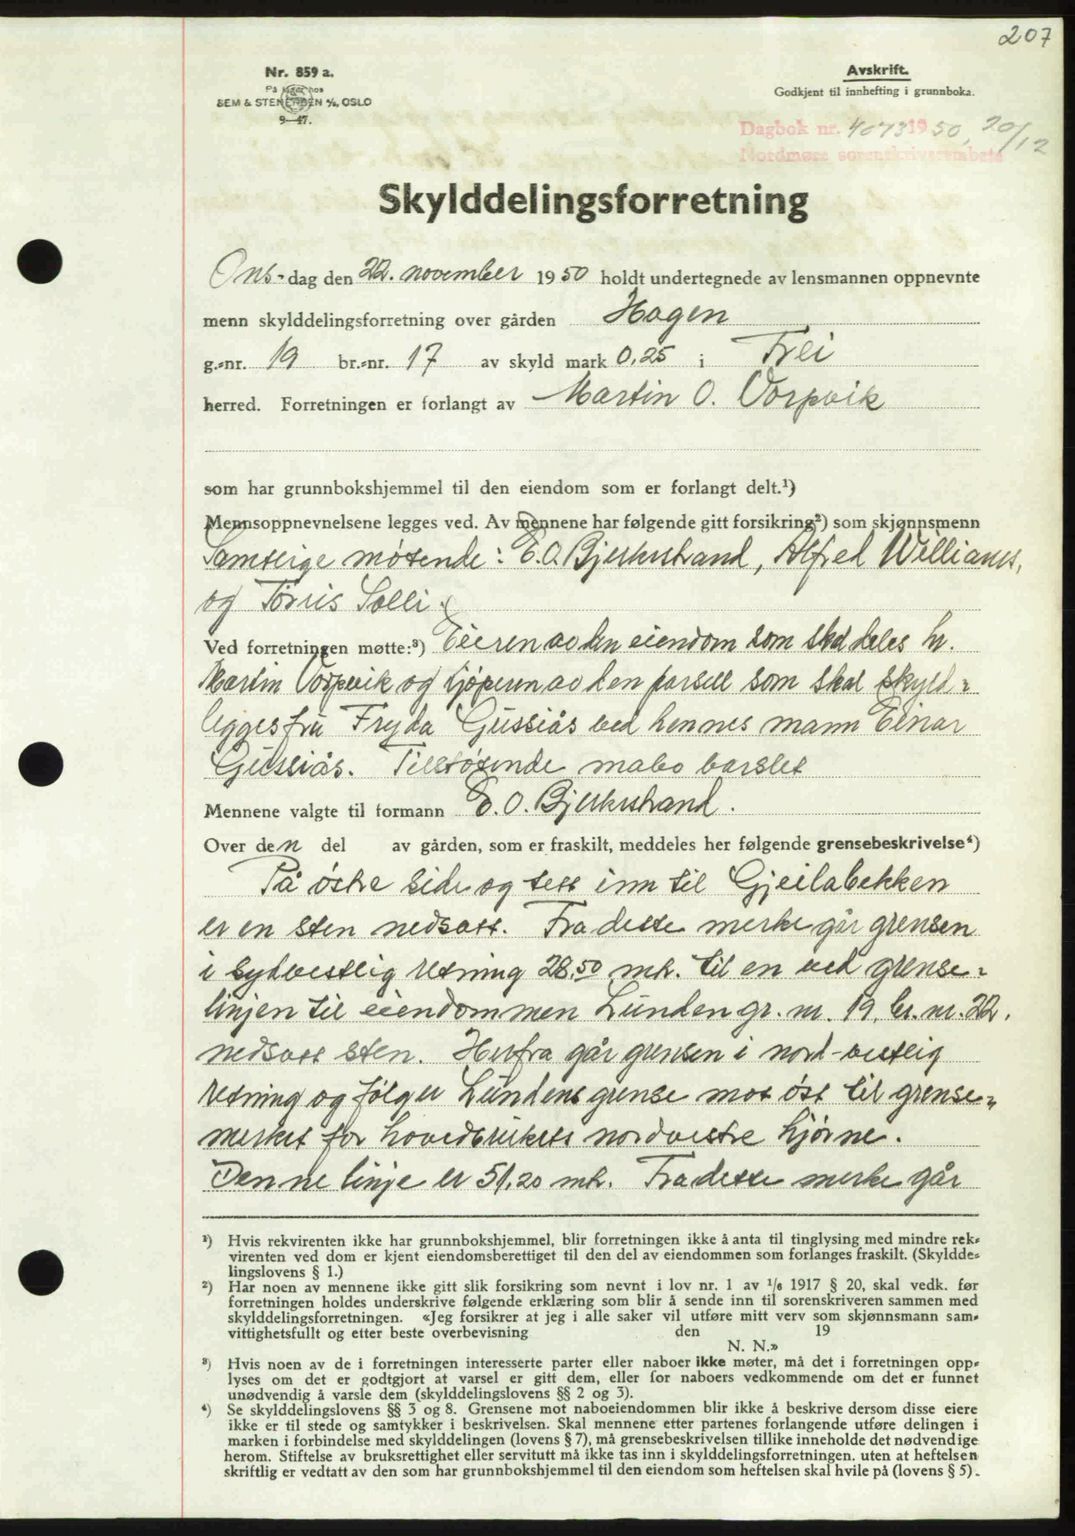 207
Nr. 859 a.
På lager hos
SEM & STENERSEN A/S, OSLO
9—47.
Avskrift.
Godkjent til innhefting i grunnboka.
Dagbok nr. 4073 1950, 20/12
Nordmøre sorenskriverembete
Skylddelingsforretning
Ons-dag den 22. november 1950 holdt undertegnede av lensmannen oppnevnte
menn skylddelingsforretning over gården Hagen
g.-nr. 19 br.-nr. 17 av skyld mark 0,25 i Frei
herred. Forretningen er forlangt av Martin O. Vorpvik
som har grunnbokshjemmel til den eiendom som er forlangt delt.¹)
Mennsoppnevnelsene legges ved. Av mennene har følgende gitt forsikring²) som skjønnsmenn
Samtlige møtende: E.O. Bjerkestrand, Alfred Williams,
og Tøris Solli.
Ved forretningen møtte:³) Eieren av den eiendom som skal deles hr.
Martin Vorpvik og kjøperen av den parsell som skal skyld-
legges fru Fryda Gussiås ved hennes mann Einar
Gussiås. Tilstøtende nabo varslet
Mennene valgte til formann E.O. Bjerkestrand.
Over den del av gården, som er fraskilt, meddeles her følgende grensebeskrivelse⁴)
På østre side og tett inn til Gjeilabekken
er en sten nedsatt. Fra dette merke går grensen
i sydvestlig retning 28.50 mtr. til en ved grense-
linjen til eiendommen Lunden gr. nr. 19, br. nr. 22.
nedsatt sten. Herfra går grensen i nord-vestlig
retning og følger Lundens grense mot øst til grense-
merket for hovedbrukets nordvestre hjørne.
Denne linje er 51,20 mtr. Fra dette merke går
¹) Hvis rekvirenten ikke har grunnbokshjemmel, blir forretningen ikke å anta til tinglysing med mindre rek-
virenten ved dom er kjent eiendomsberettiget til den del av eiendommen som forlanges fraskilt. (Skyldde-
lingslovens § 1.)
²) Har noen av mennene ikke gitt slik forsikring som nevnt i lov nr. 1 av 1/6 1917 § 20, skal vedk. før
forretningen holdes underskrive følgende erklæring som blir å sende inn til sorenskriveren sammen med
skylddelingsforretningen. «Jeg forsikrer at jeg i alle saker vil utføre mitt verv som skjønnsmann sam-
vittighetsfullt og etter beste overbevisning den 19
N. N.»
³) Hvis noen av de i forretningen interesserte parter eller naboer ikke møter, må det i forretningen opp-
lyses om det er godtgjort at varsel er gitt dem, eller for naboers vedkommende om det er funnet
unødvendig å varsle dem (skylddelingslovens §§ 2 og 3).
⁴) Se skylddelingslovens §§ 3 og 8. Grensene mot naboeiendommen blir ikke å beskrive dersom disse eiere
ikke er til stede og samtykker i beskrivelsen. Skal mennene etter partenes forlangende utføre delingen i
marken i forbindelse med skylddelingen (lovens § 7), må grensebeskrivelsen tillike inneholde det nødvendige
herom. Stiftelse av bruksrettighet eller servitutt må ikke tas inn i skylddelingsforretningen, uten at heftelsen
skriftlig er vedtatt av den som har grunnbokshjemmel til den eiendom som heftelsen skal hvile på (lovens § 5).